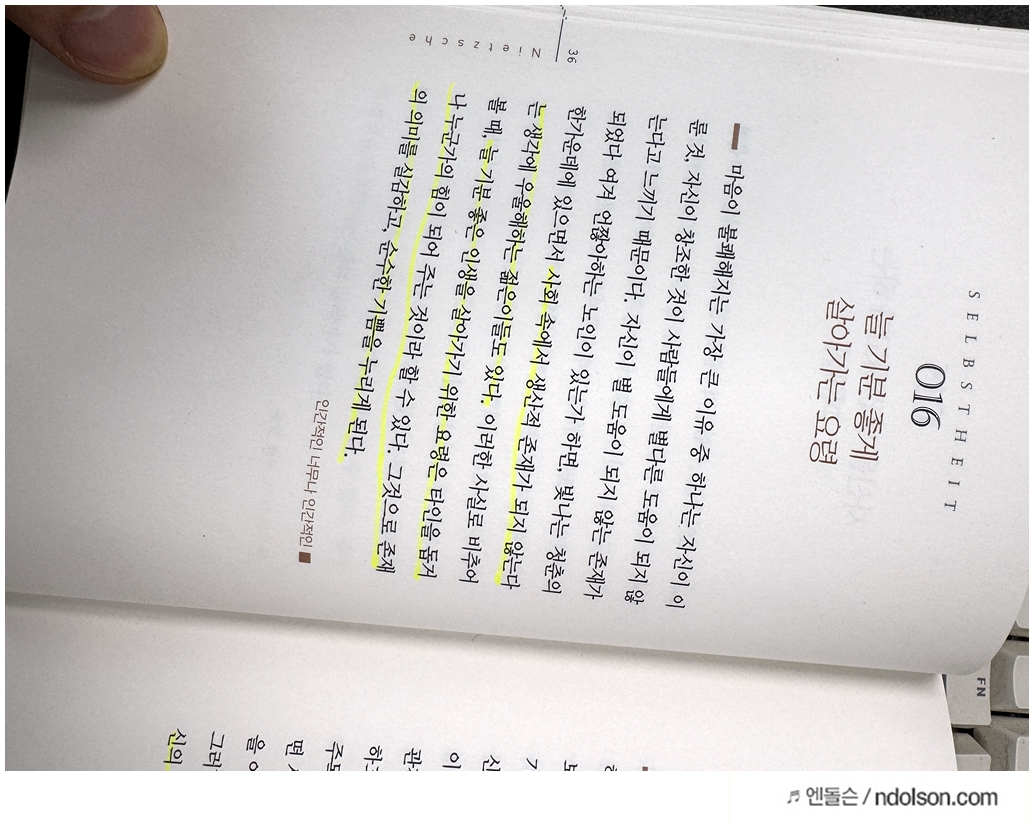 SELBSTHEIT
016
늘 기분 좋게
살아가는 요령
마음이 불쾌해지는 가장 큰 이유 중 하나는 자신이 이
룬 것, 자신이 창조한 것이 사람들에게 별다른 도움이 되지 않
는다고 느끼기 때문이다. 자신이 별 도움이 되지 않는 존재가
되었다 여겨 언짢아하는 노인이 있는가 하면, 빛나는 청춘의
한가운데에 있으면서 사회 속에서 생산적 존재가 되지 않는다
는 생각에 우울해하는 젊은이들도 있다. 이러한 사실로 비추어
볼 때, 늘 기분 좋은 인생을 살아가기 위한 요령은 타인을 돕거
나 누군가의 힘이 되어 주는 것이라 할 수 있다. 그것으로 존재
의 의미를 실감하고, 순수한 기쁨을 누리게 된다.
인간적인 너무나 인간적인
36
Nietzsche
이
관
하
주
떤
을
그리
신의
FN
엔돌슨 / ndolson.com